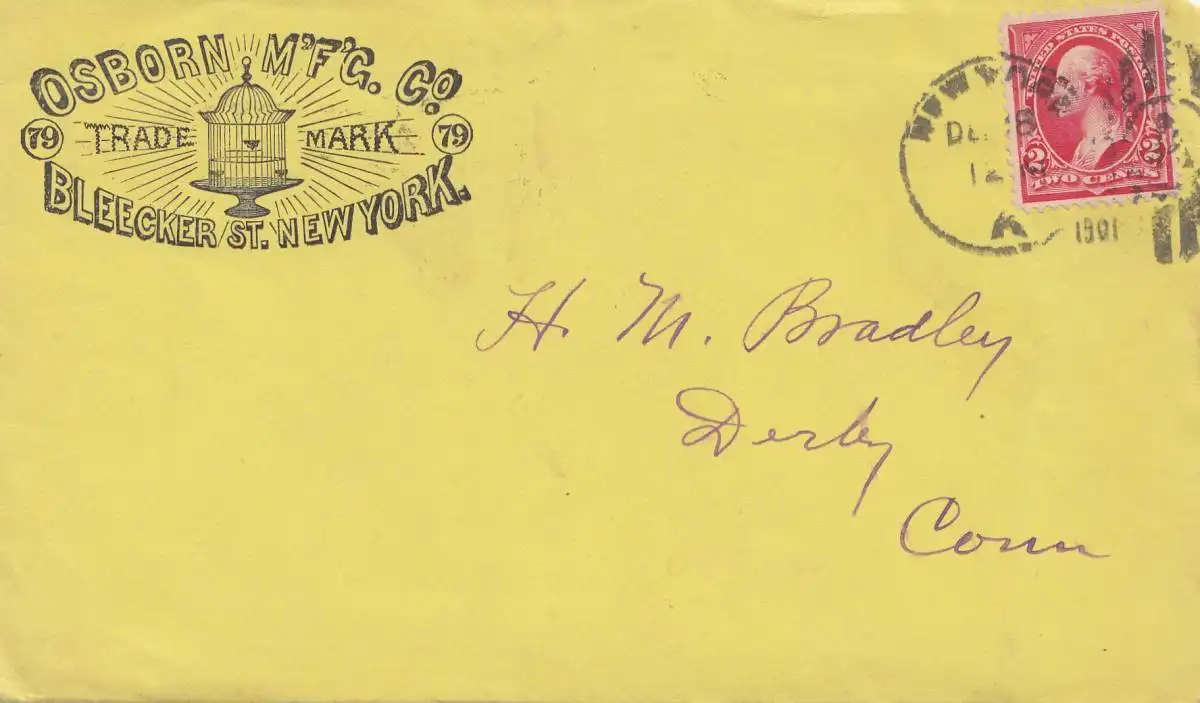 OSBORN M'F'G. Co.
79 TRADE MARK 79
BLEECKER ST. NEW YORK.
UNITED STATES POSTAGE
2 2
TWO CENTS
NEW Y
DE
12
A
1901
H. M. Bradley
Derby
Conn